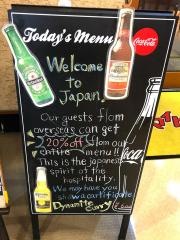 Today's Menu
Coca-Cola
Welcome
to
Japan!
Our guests from
overseas can get
20% off from our
entire menu!!
This is the japanese
spirit of the
hospitality.
We may have you
show a certificate
Dynamite Curry